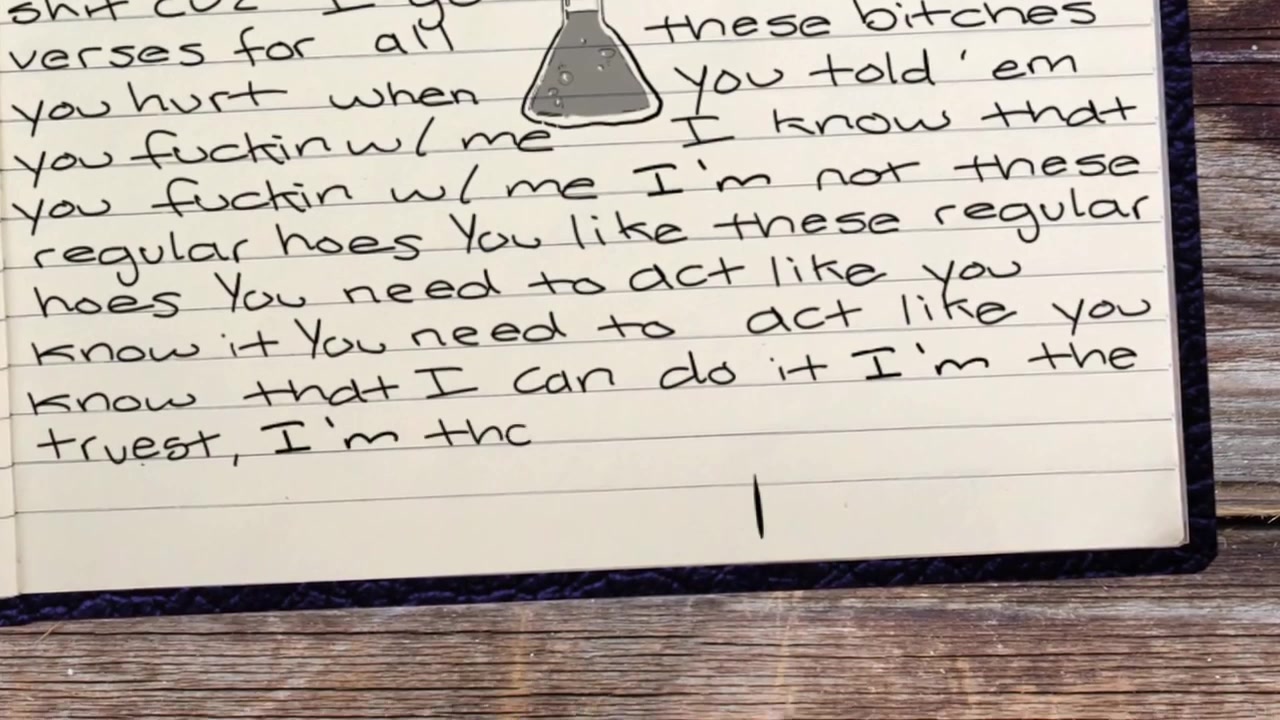 shit cuz I
verses for all these bitches
you hurt when you told 'em
you fuckin w/ me I know that
you fuckin w/ me I'm not these
regular hoes You like these regular
hoes You need to act like you
know it You need to act like you
know that I can do it I'm the
truest, I'm